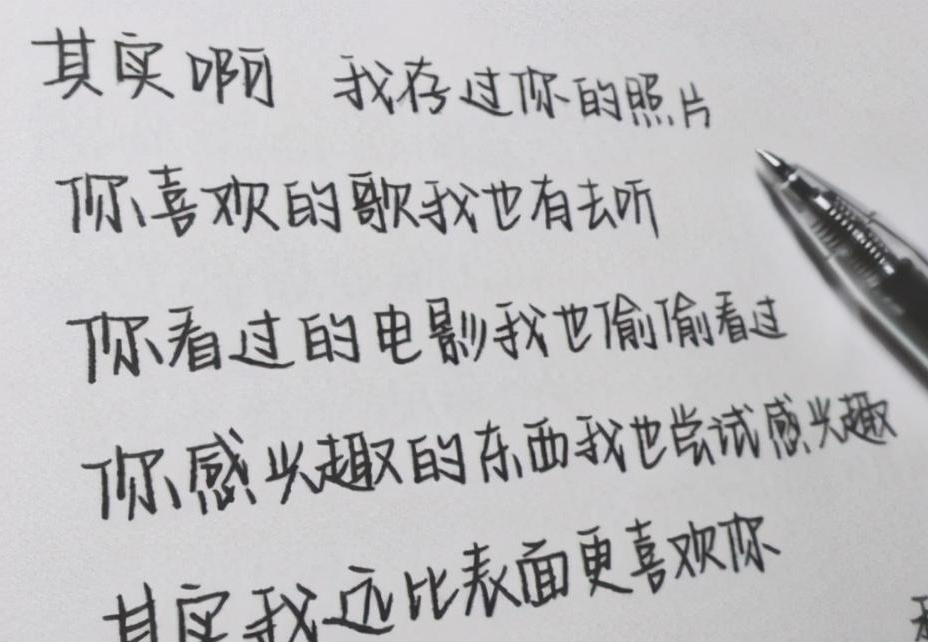 其实啊 我存过你的照片
你喜欢的歌我也有去听
你看过的电影我也偷偷看过
你感兴趣的东西我也尝试感兴趣
其实我远比表面更喜欢你